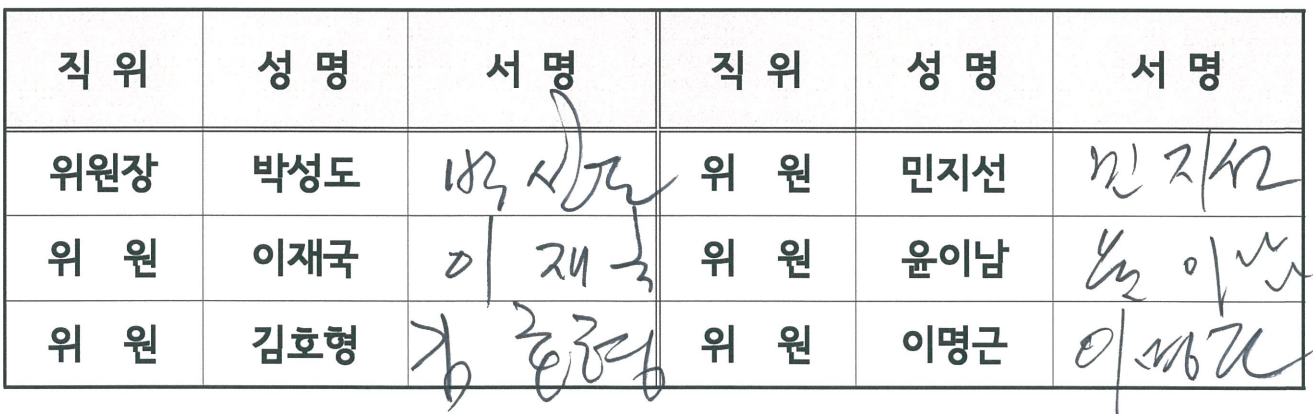 직 위 성 명 서 명 직 위 성 명 서 명
위원장 박성도 박성도 위 원 민지선 민지선
위 원 이재국 이재국 위 원 윤이남 윤이남
위 원 김호형 김호형 위 원 이명근 이명근